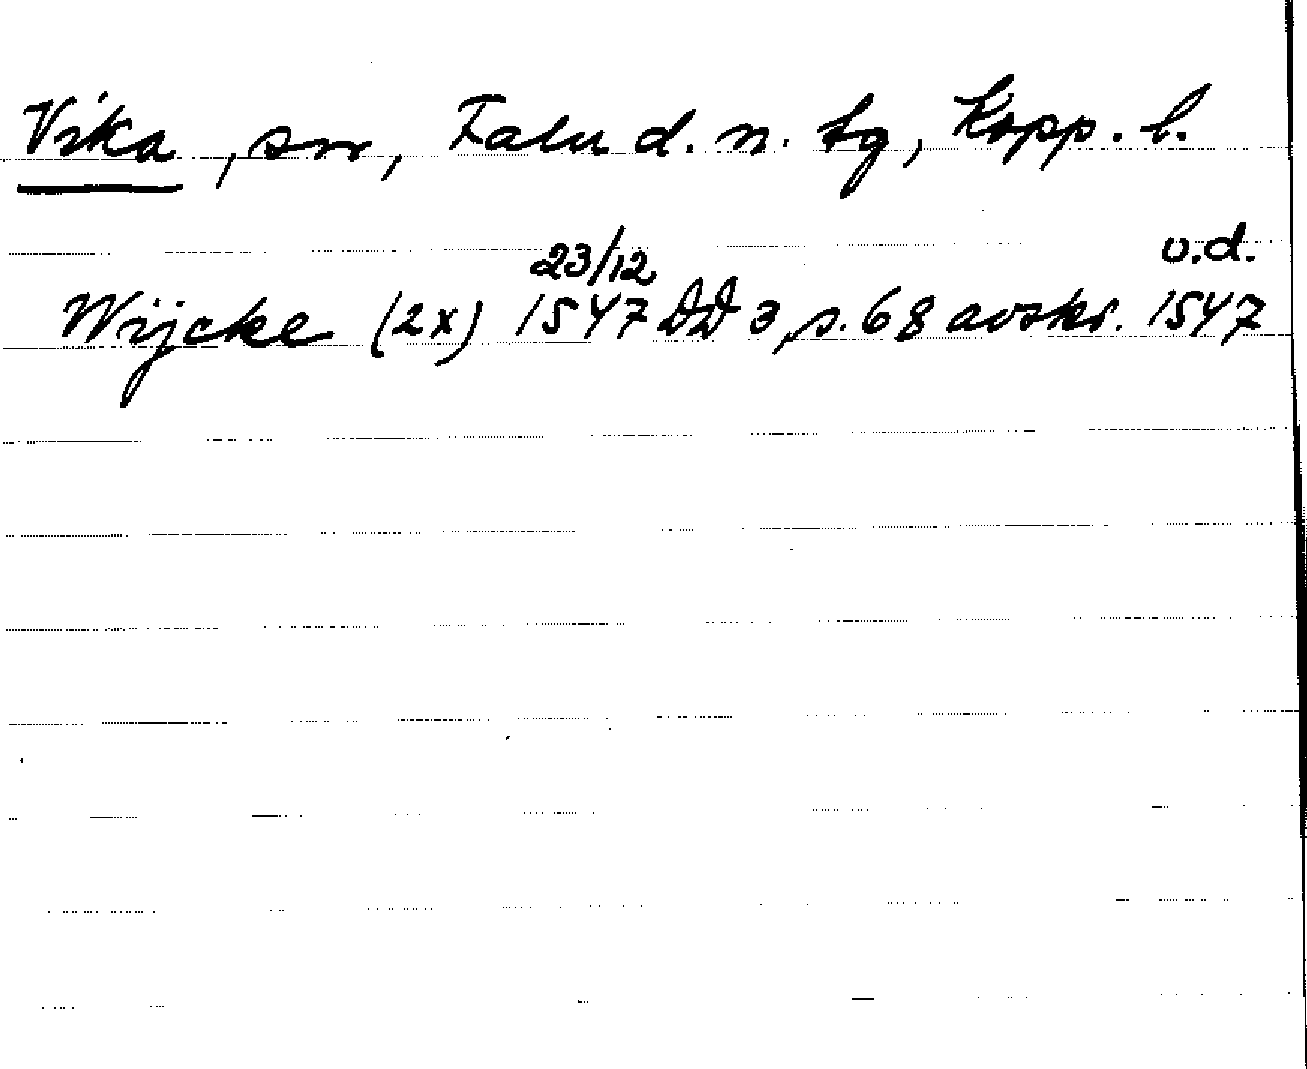 Vika, sn, Falu d. n. tg, Kopp. l.
23/12 u.d.
Wijcke (2x) 1547 DD 3, s. 68 avskr. 1547